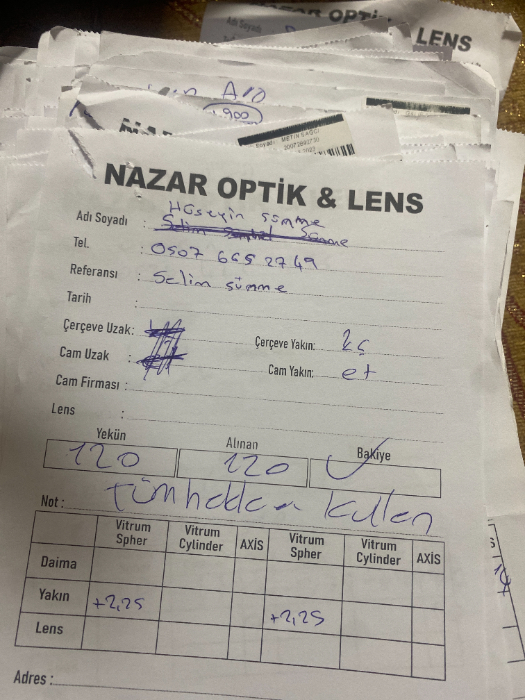 OPTİK
LENS
900
NAZAR OPTİK & LENS
Adı Soyadı : Hüseyin sümme
Tel. : 0507 665 2749
Referansı : Selim sümme
Tarih :
Çerçeve Uzak: Çerçeve Yakın: kç
Cam Uzak : Cam Yakın: et
Cam Firması :
Lens :
Yekün Alınan Bakiye
120 120
Not :
Vitrum Spher Vitrum Cylinder AXİS Vitrum Spher Vitrum Cylinder AXİS
Daima
Yakın +2,25 +2,25
Lens
Adres :